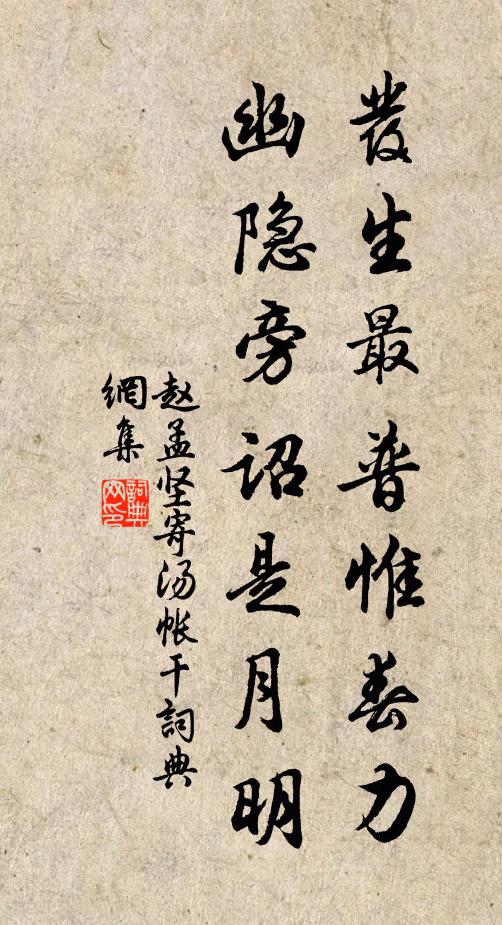 發生最普惟春力
幽隐旁诏是月明
赵孟坚寄汤帐干詞典
網集
詞典
网印